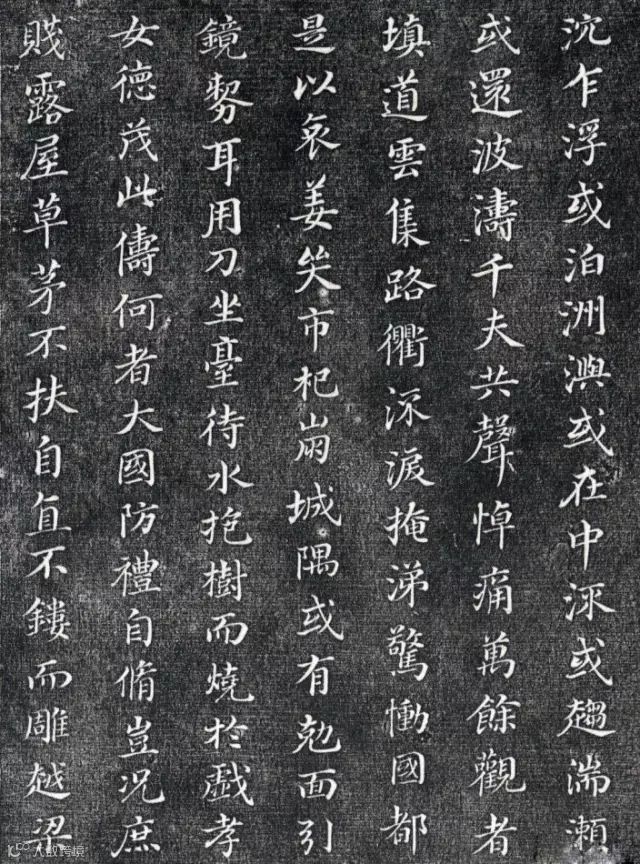 沉乍浮或泊洲渚或在中流或趨湍瀨
或還波濤千夫共聲悼痛萬餘觀者
填道雲集路衢流淚掩涕驚慟國都
是以哀姜哭市杞崩城隅或有剋面引
鏡剺耳用刀坐臺待水抱樹而燒於戲孝
女德茂此儔何者大國防禮自脩豈況庶
賤露屋草茅不扶自直不鏤而雕越梁
大數跨境